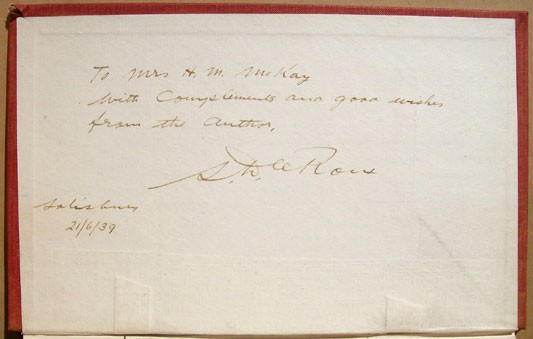 To Mrs H. M. McKay
With Complements and good wishes
from the Author,
S. le Roux
Salisbury
21/6/39